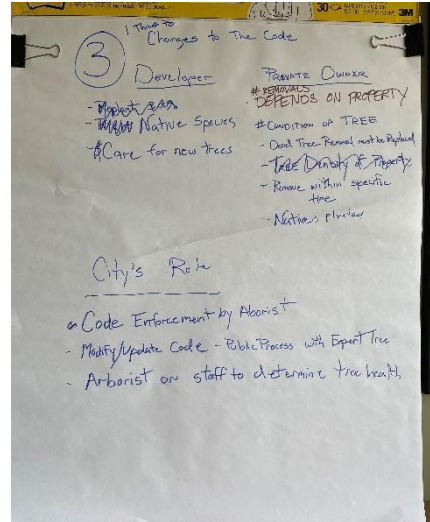 3
Changes to The Code
Developer
- Native Species
- Care for new trees
PRIVATE OWNER
# REMOVALS
DEPENDS ON PROPERTY
# CONDITION OF TREE
- Dead Tree Removal must be Replaced
- Tree Density of Property
- Remove within specific
time
- Natives
City's Role
Code Enforcement by Aborist
- Modify/Update Code - Public Process with Expert Tree
- Arborist on staff to determine tree health
30
3M